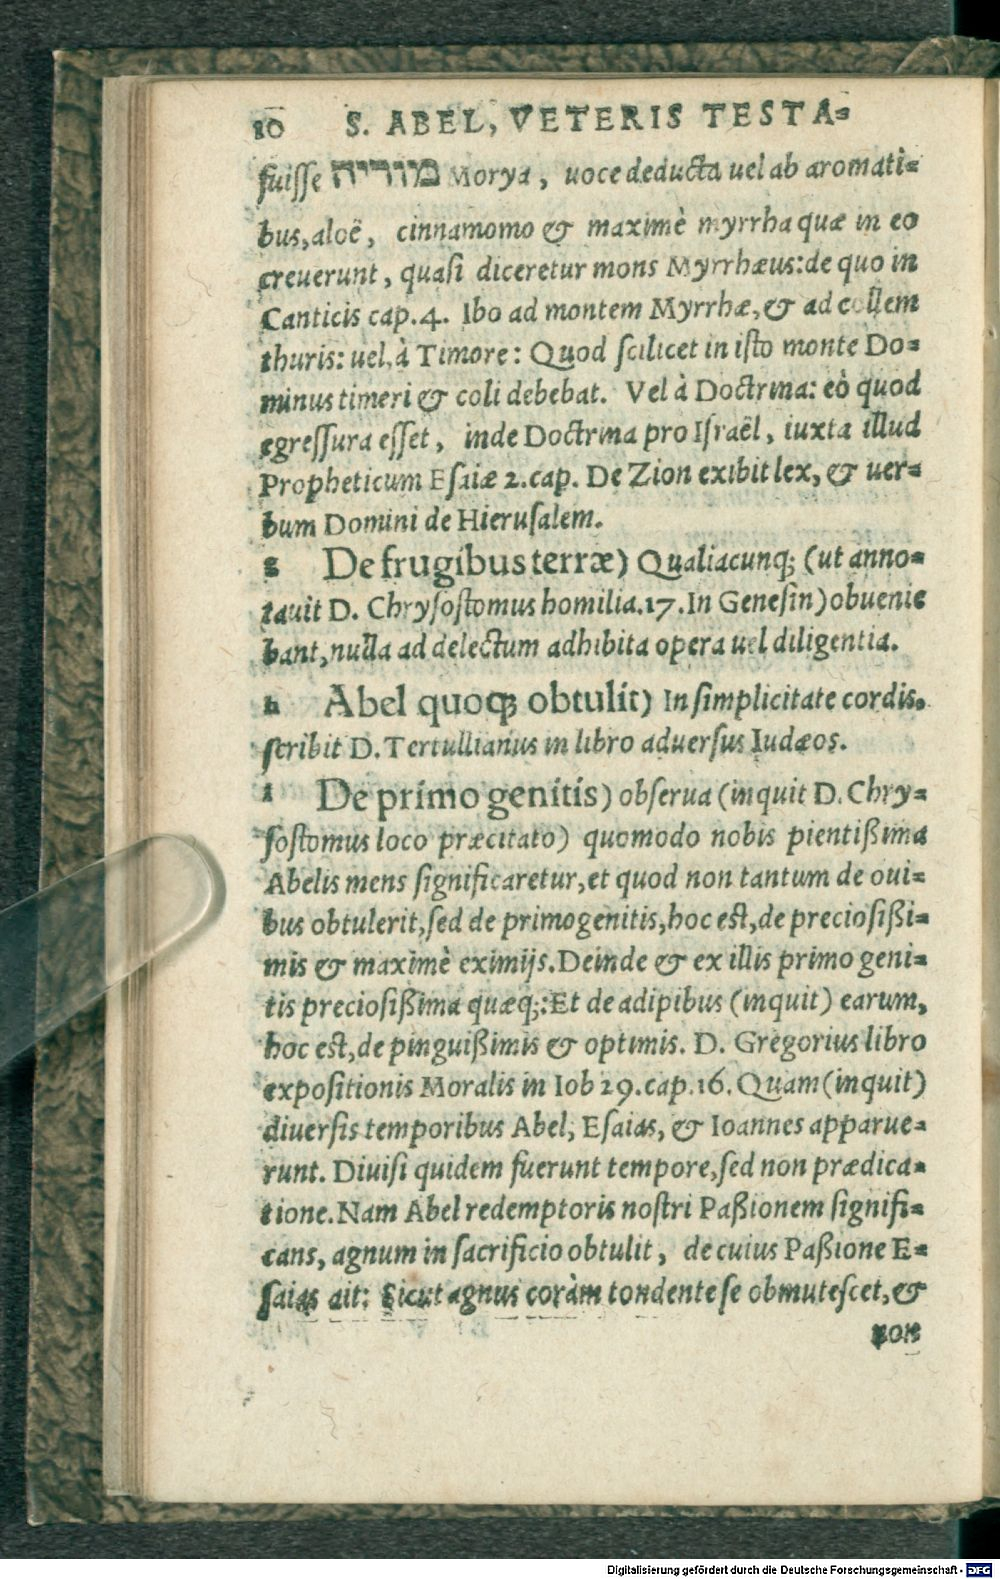 80 S. ABEL, VETERIS TESTA-
fuisse מוריה Morya, uoce deducta uel ab aromati-
bus, aloë, cinnamomo & maximè myrrha quæ in eo
creuerunt, quasi diceretur mons Myrrhæus: de quo in
Canticis cap. 4. Ibo ad montem Myrrhæ, & ad collem
thuris: uel, à Timore: Quod scilicet in isto monte Do-
minus timeri & coli debebat. Vel à Doctrina: eò quod
egressura esset, inde Doctrina pro Israël, iuxta illud
Propheticum Esaiæ 2. cap. De Zion exibit lex, & uer-
bum Domini de Hierusalem.
g De frugibus terræ) Qualiacunq; (ut anno-
tauit D. Chrysostomus homilia. 17. In Genesin) obuenie
bant, nulla ad delectum adhibita opera uel diligentia.
h Abel quoq; obtulit) In simplicitate cordis.
scribit D. Tertullianus in libro aduersus Iudæos.
i De primogenitis) obserua (inquit D. Chry-
sostomus loco præcitato) quomodo nobis pientißima
Abelis mens significaretur, et quod non tantum de oui-
bus obtulerit, sed de primogenitis, hoc est, de preciosißi-
mis & maximè eximijs. Deinde & ex illis primogeni-
tis preciosißima quæq;: Et de adipibus (inquit) earum,
hoc est, de pinguißimis & optimis. D. Gregorius libro
expositionis Moralis in Iob 29. cap. 16. Quam (inquit)
diuersis temporibus Abel, Esaias, & Ioannes apparue-
runt. Diuisi quidem fuerunt tempore, sed non prædica-
tione. Nam Abel redemptoris nostri Paßionem signifi-
cans, agnum in sacrificio obtulit, de cuius Paßione E-
saias ait: Sicut agnus coràm tondente se obmutescet, &
non
Digitalisierung gefördert durch die Deutsche Forschungsgemeinschaft - DFG